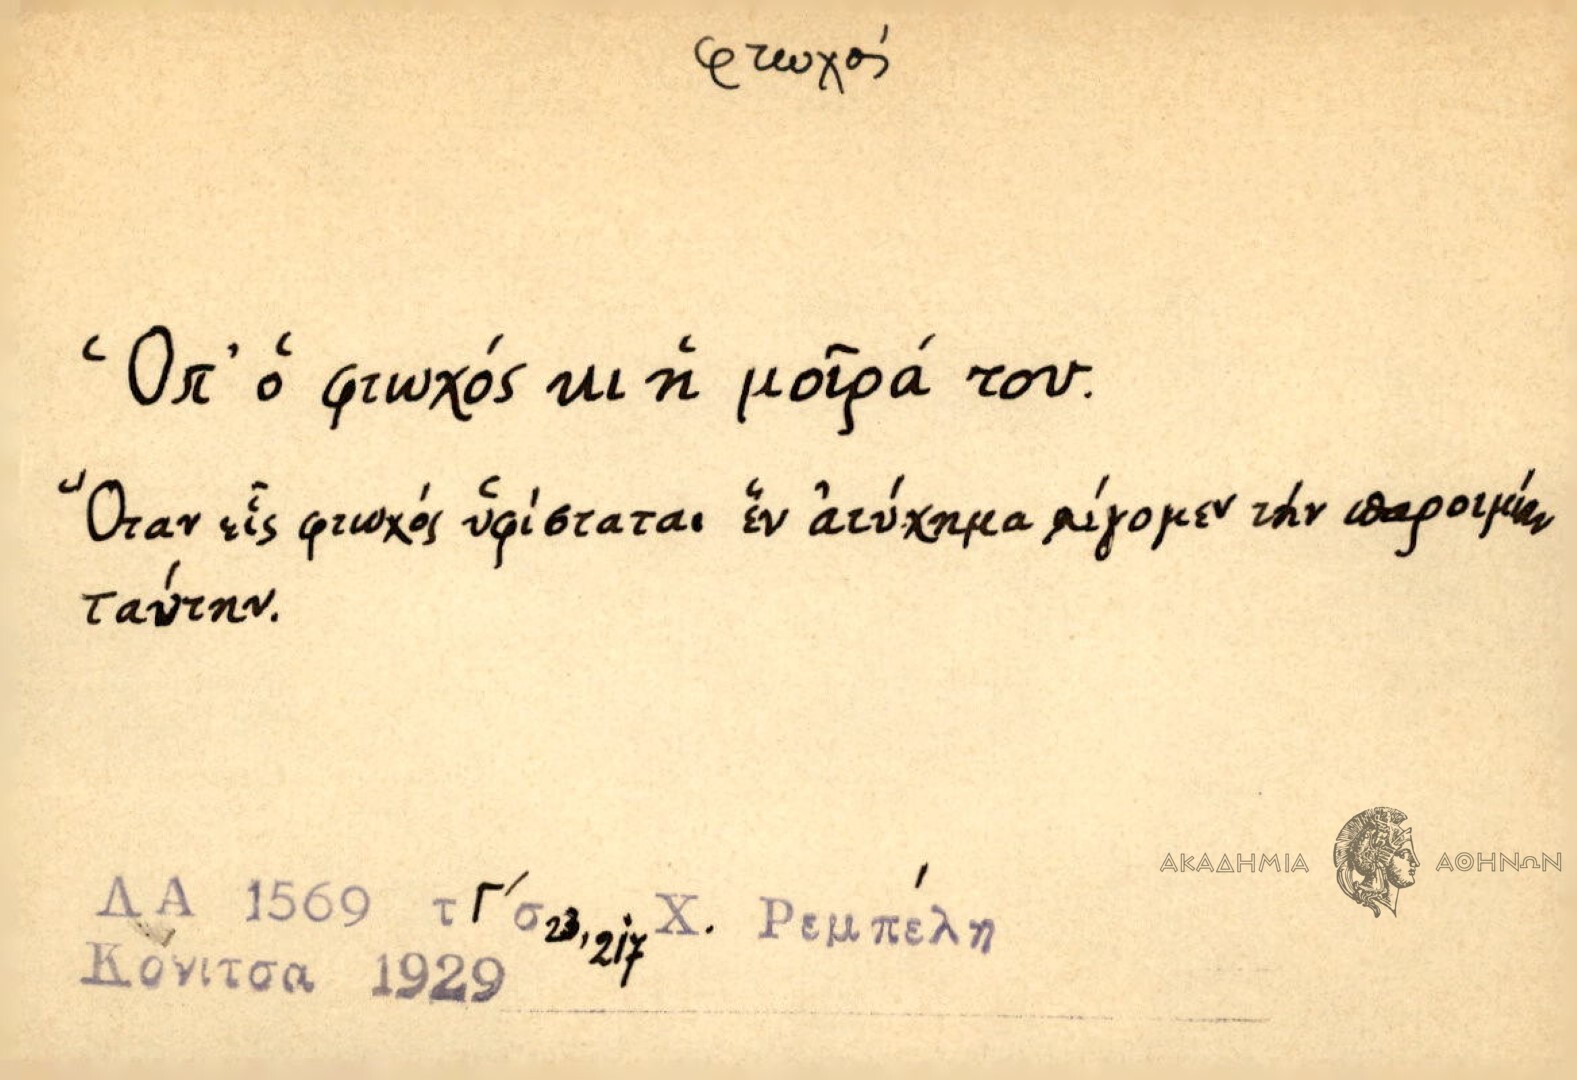 φτωχός
Ὁπ' ὁ φτωχός κι ἡ μοῖρά του.
Ὅταν εἷς φτωχός ὑφίσταται ἕν ἀτύχημα λέγομεν τήν παροιμίαν
ταύτην.
ΑΚΑΔΗΜΙΑ ΑΘΗΝΩΝ
ΛΑ 1569 τ Γ΄ σ 23, 217 Χ. Ρεμπέλη
Κόνιτσα 1929